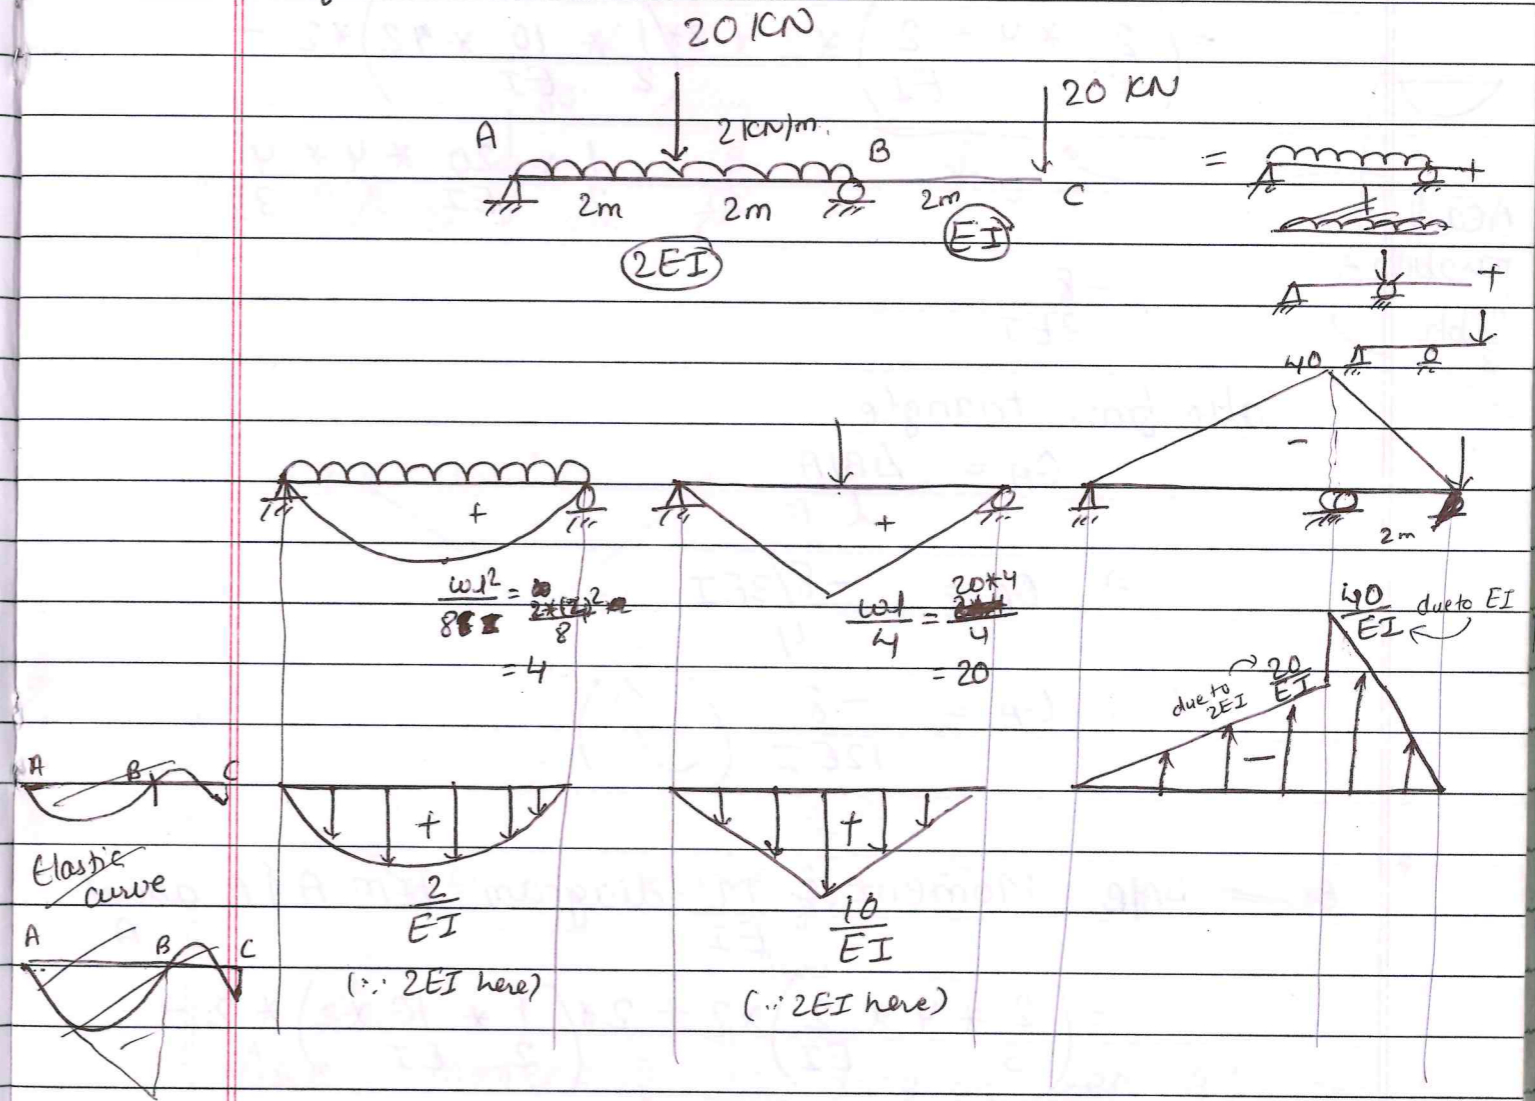 20 KN
20 KN
A 2 KN/m. B
=
+
2m 2m 2m C
2EI EI
+
40
+ + -
2m
wl²/8 = 2*(2)²/8
= 4
wl/4 = 20*4/4
= 20
40/EI due to EI
due to 2EI 20/EI
A B C
+ + -
Elastic curve
2/EI
10/EI
A B C
(∵ 2EI here)
(∵ 2EI here)